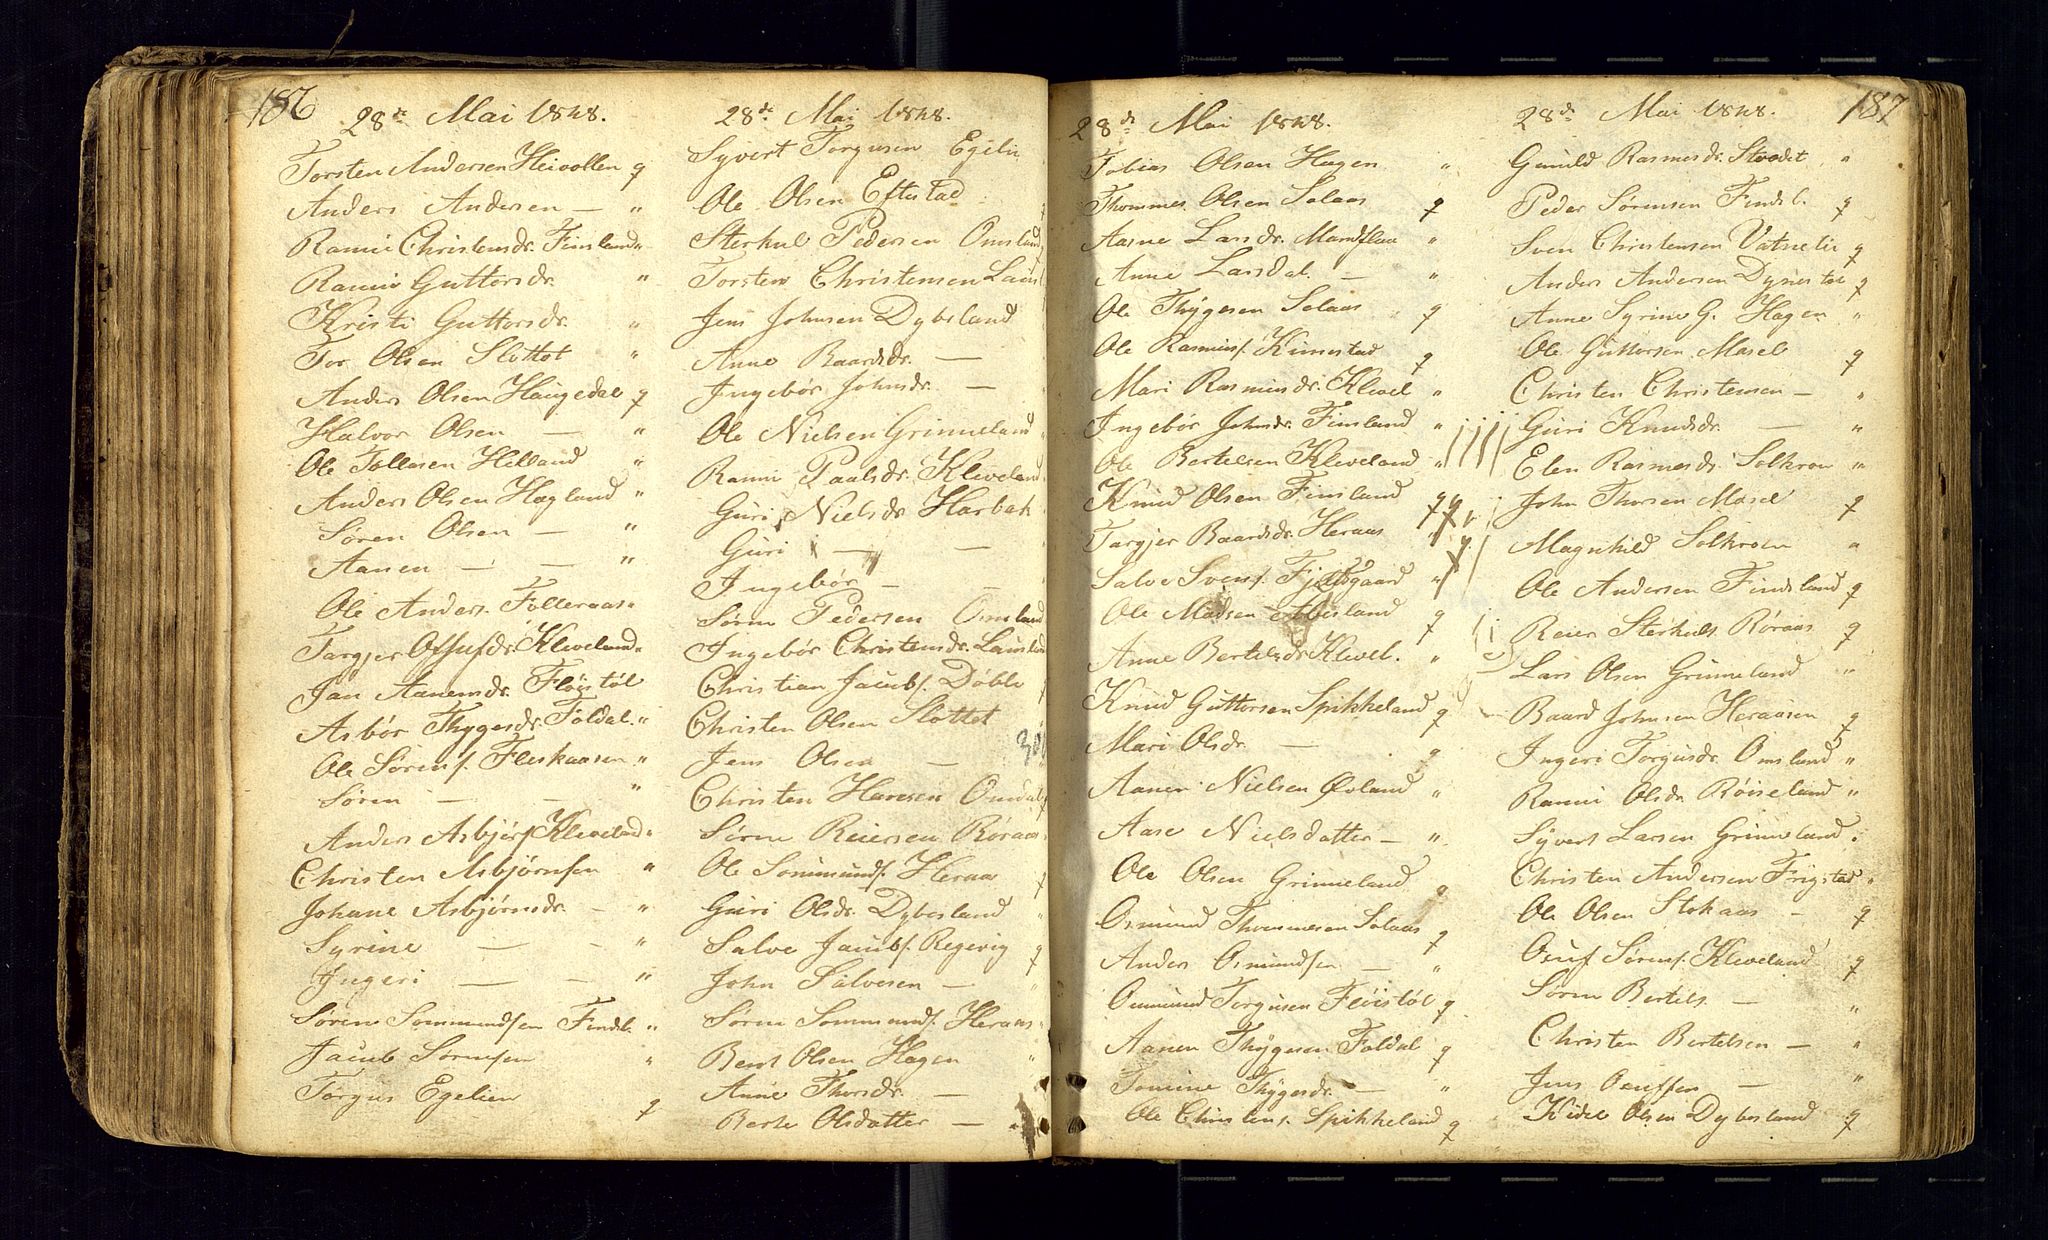 186
28de Mai 1848.
Torsten Andersen Heivollen q
Anders Andersen — "
Rannie Christensdr. Finsland "
Rannie Guttorsdr. "
Kristi Guttorsdr. "
Tor Olsen Slottet "
Anders Olsen Haugedal q
Halvor Olsen — "
Ole Tollesen Helland "
Anders Olsen Hagland "
Sören Olsen — "
Aanen — — "
Ole Anders. Folleraas "
Targjer Ossufdr. Kleveland "
Jan Aanensdr. Flöistöl
Asbör Thygesdr. Foldal. "
Ole Sörens. Fleskaasen "
Sören — — "
Anders Asbjörs. Kleveland "
Christen Asbjörnsen "
Johane Asbjörnsdr. — "
Syrine — — "
Ingeri — — "
Sören Sommundsen Findsl. "
Jacob Sörensen "
Torgus Egelien q
28de Mai 1848.
Syvert Torgusen Egelie
Ole Olsen Eftestad
Sterkul Pedersen Omsland
Torsten Christensen Laus
Jens Johnsen Dybesland
Anne Baardsdr. —
Ingebör Johnsdr. —
Ole Nielsen Grimeland
Ranni Paalsdr. Kleveland
Guri Nielsdr Harbak
Guri — —
Ingebör — —
Sören Pedersen Omsland
Ingebör Christensdr. Lausland
Christian Jacobs. Döble
Christen Olsen Slottet
Jens Olsen —
Christen Hansen Omdal
Sören Reiersen Röraas
Ole Sommunds. Heraas q
Guri Olsdr. Dybesland "
Salve Jacobs. Regevig q
John Salvesen — "
Sören Sommunds. Heraas "
Bent Olsen Hagen "
Anne Thorsdr. —
Berte Olsdatter —
28de Mai 1848.
Tobias Olsen Hagen "
Thommes Olsen Solaas q
Aasne Larsdr. Mandflaa "
Anne Larsdal. — "
Ole Thygesen Solaas q
Ole Rasmus. Kimestad q
Mari Rasmusdr. Klevel "
Ingebör Johnsdr. Finsland "
Ole Bertelsen Kleveland "
Knud Olsen Finsland q
Targjer Baardsdr. Heraas "
Salve Svens. Fjeldsgaard "
Ole Madsen q
Anne Bertelsdr Klevel. "
Knud Guttorsen Spikkeland q
Mari Olsdr. — q
Aanen Nielsen Øvland "
Aase Nielsdatter — "
Ole Olsen Grimeland q
Osmund Thommesen Solaas q
Anders Osmundsen — "
Osmund Torgusen Flöistöl q
Aanen Thygesen Foldal q
Tomine Thygesdr. — "
Ole Christens. Spikkeland q
187
28de Mai 1848.
Gunild Rasmusdr. Stoodet "
Peder Sörensen Findsl. q
Sven Christensen Vatnelie q
Anders Andersen Dynestøl q
Anne Syrine G. Hagen "
Ole Guttorsen Mosel q
Christen Christensen — "
Guri Knudsdr. — "
Elen Rasmusdr. Solkron "
John Thorsen Mosel q
Magnhild Solkron "
Ole Andersen Findsland q
Reier Sterkuls. Röraas q
Lars Olsen Grimeland "
Baard Johnsen Heraasen q
Ingeri Torgusdr. Omsland "
Ranni Olsdr Röiseland "
Syvert Larsen Grimeland "
Christen Andersen Frigstad "
Ole Olsen Stokaas — q
Osuf Sörens. Kleveland q
Sören Bertels. — "
Christen Bertelsen — "
Jens Osuffsen — "
Kidel Olsen Dybesland q